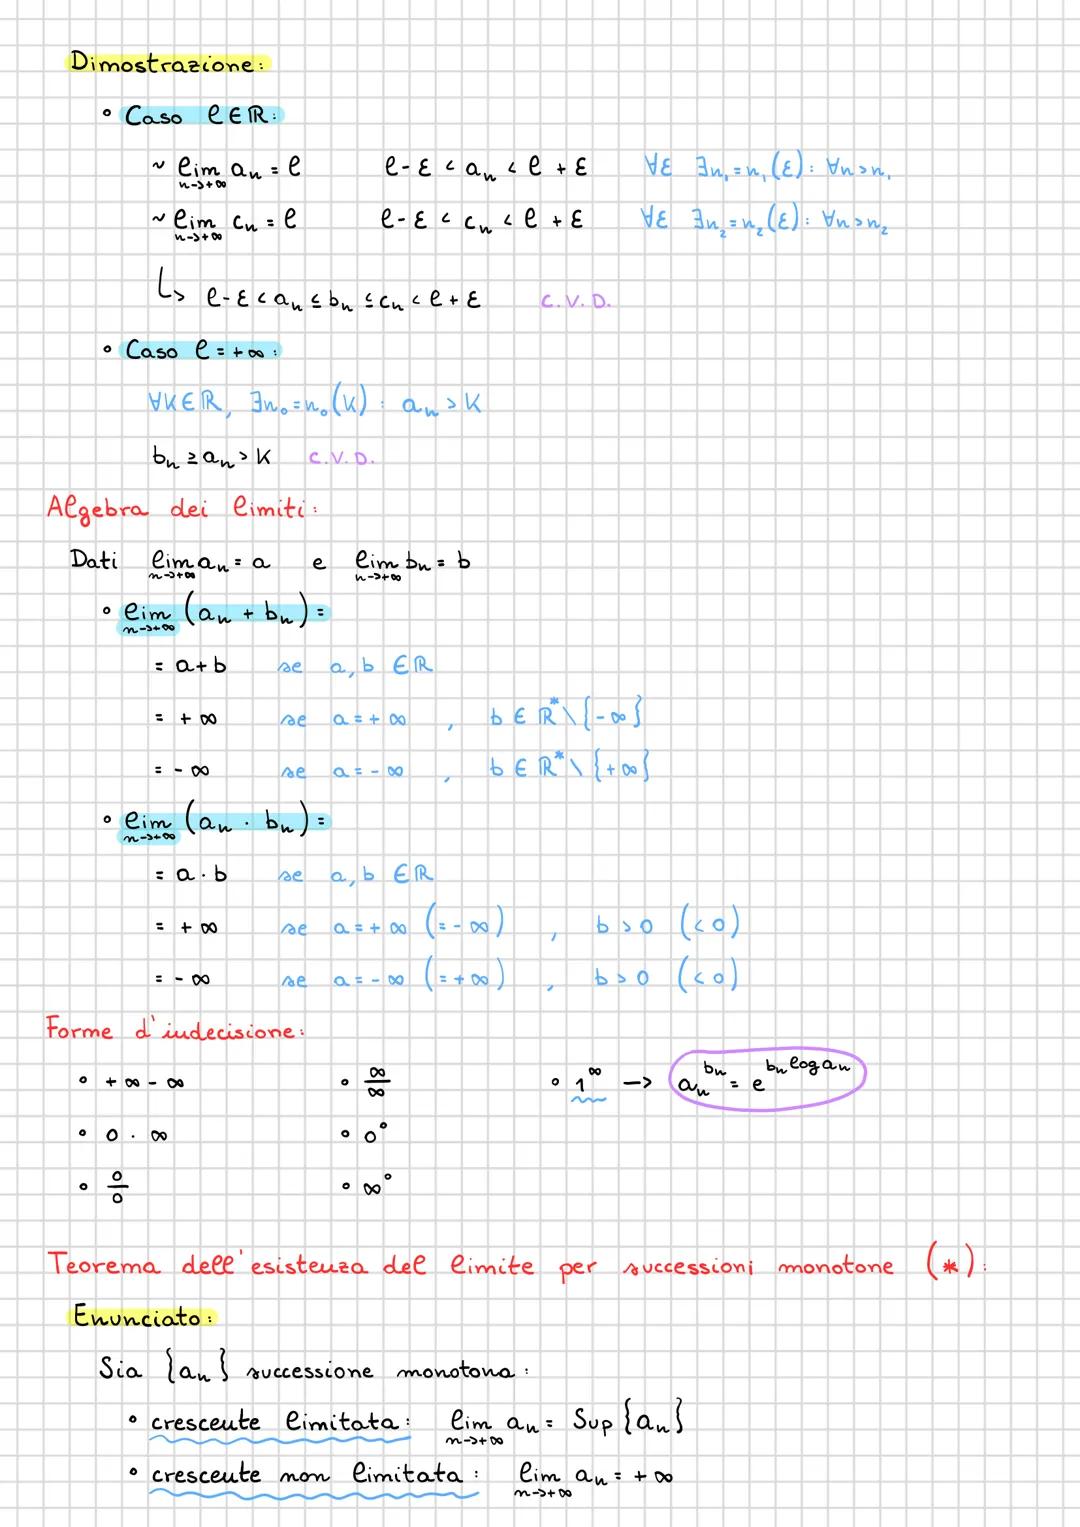 Dimostrazione:
° Caso ℓ∈ℝ:
~ lim aₙ = ℓ    ℓ-ε < aₙ < ℓ+ε    ∀ε ∃n₁=n₁(ε): ∀n>n₁
n->+∞
~ lim cₙ = ℓ    ℓ-ε < cₙ < ℓ+ε    ∀ε ∃n₂=n₂(ε): ∀n>n₂
n->+∞
↳ ℓ-ε < aₙ ≤ bₙ ≤ cₙ < ℓ+ε    C.V.D.
° Caso ℓ = +∞:
∀K∈ℝ, ∃n₀=n₀(K): aₙ > K
bₙ ≥ aₙ > K    C.V.D.
Algebra dei limiti:
Dati lim aₙ = a e lim bₙ = b
n->+∞ n->+∞
° lim (aₙ + bₙ) =
n->+∞
= a+b se a,b ∈ℝ
= +∞ se a=+∞ , b∈ℝ*\{-∞}
= -∞ se a=-∞ , b∈ℝ*\{+∞}
° lim (aₙ · bₙ) =
n->+∞
= a·b se a,b ∈ℝ
= +∞ se a=+∞ (=-∞) , b>0 (<0)
= -∞ se a=-∞ (=+∞) , b>0 (<0)
Forme d'indecisione:
° +∞-∞    ° ∞/∞    ° 1^∞ -> aₙ^bₙ = e^(bₙ log aₙ)
° 0·∞    ° 0⁰
° 0/0    ° ∞⁰
Teorema dell'esistenza del limite per successioni monotone (*):
Enunciato:
Sia {aₙ} successione monotona:
° crescente limitata: lim aₙ = Sup {aₙ}
n->+∞
° crescente non limitata: lim aₙ = +∞
n->+∞